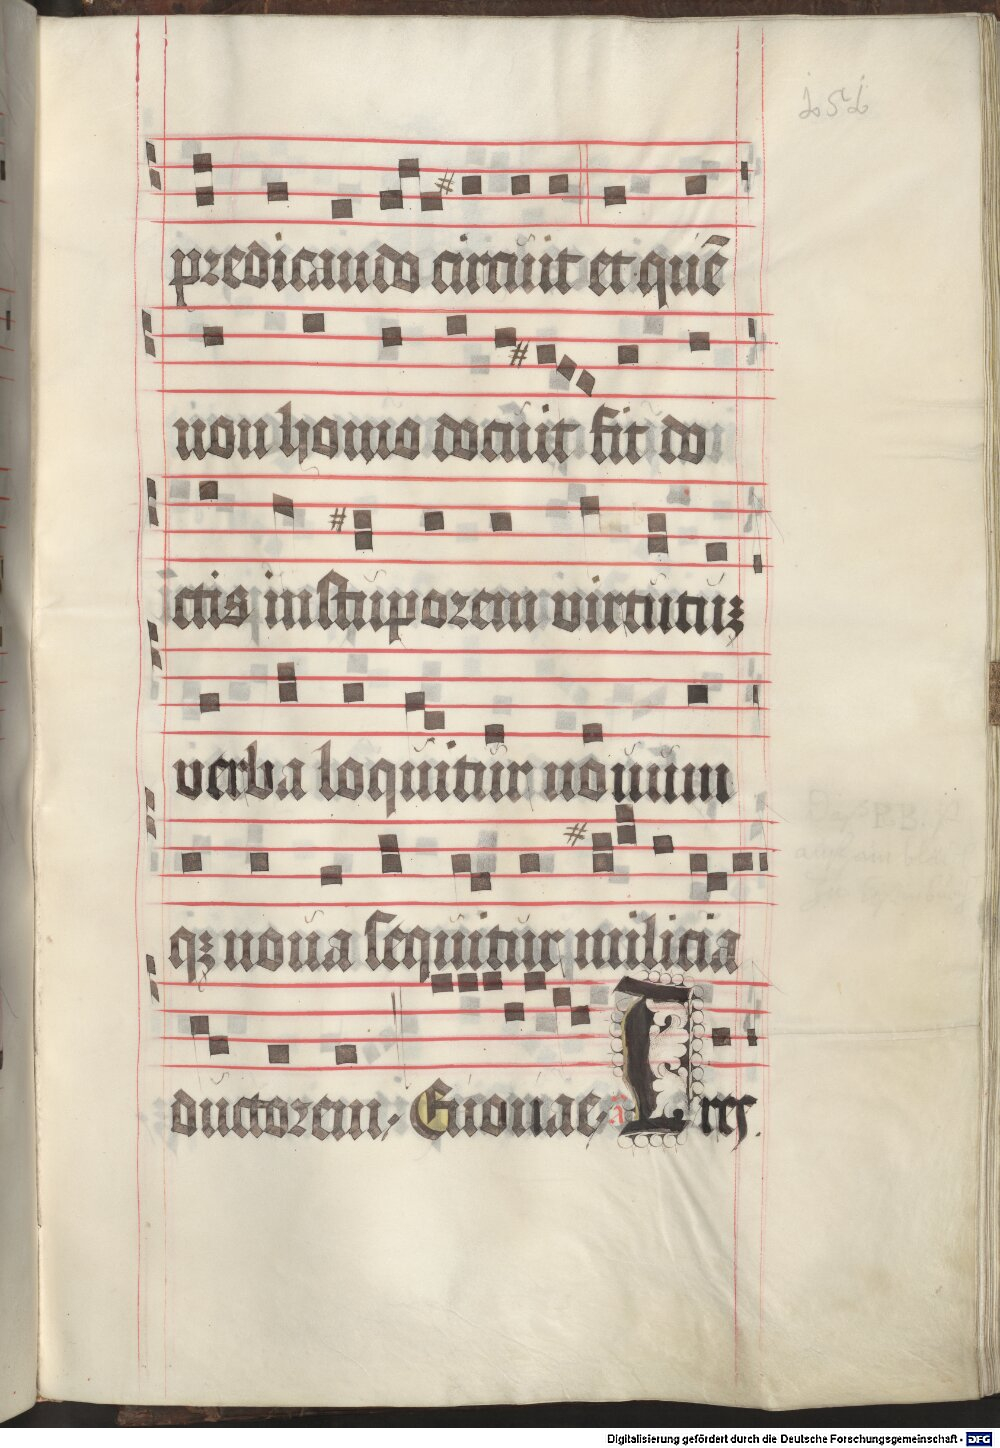 predicando circuit et quē
non homo docuit fit do
ctis in stuporem virtutuʒ
verba loquitur nouum
qʒ noua sequitur milicia
ductorem Euouae a
Digitalisierung gefördert durch die Deutsche Forschungsgemeinschaft - DFG